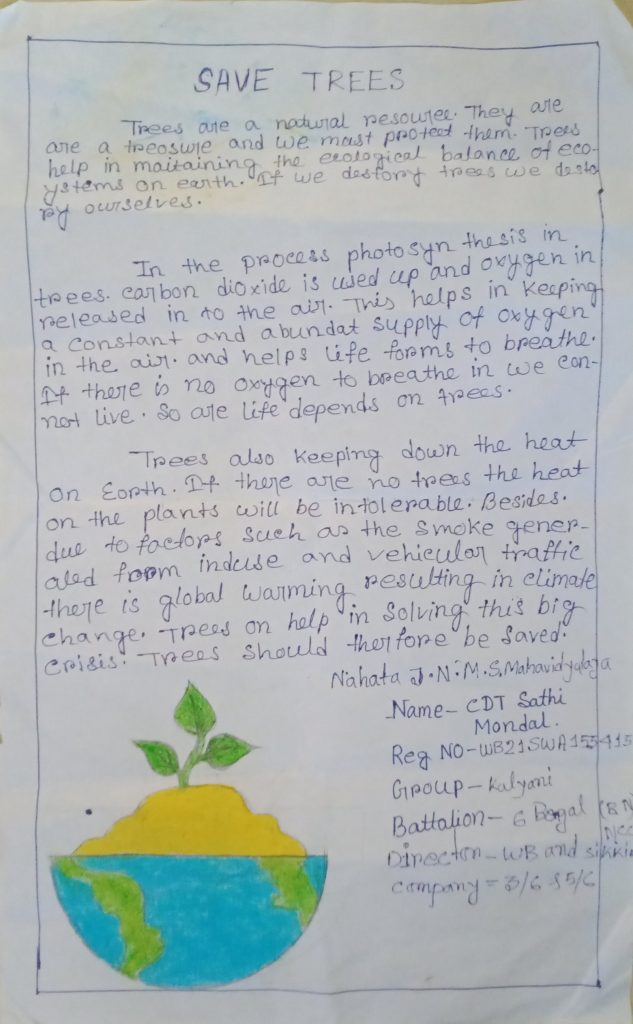 SAVE TREES
Trees are a natural resource. They are
are a treosure and we mast protect them. Trees
help in maitaining the ecological balance of eco-
ystems on earth. If we destory trees we desto
ry ourselves.
In the process photosyn thesis in
trees. carbon dioxide is used up and oxygen in
released in to the air. This helps in keeping
a constant and abundat supply of oxygen
in the air. and helps life forms to breathe.
If there is no oxygen to breathe in we can-
not live. So are life depends on trees.
Trees also keeping down the heat
on Earth. If there are no trees the heat
on the plants will be intolerable. Besides.
due to factors such as the smoke gener-
ated from induse and vehicular traffic
there is global warming resulting in climate
change. Trees on help in solving this big
crisis. Trees should therfore be saved.
Nahata J.N.M.S.Mahavidyalaya
Name- CDT Sathi
Mondal.
Reg NO-WB21SWA155415
Group-Kalyani
Battalion- 6 Begal (B N
NCC
Directon-WB and sikki
company = 3/6 &5/6